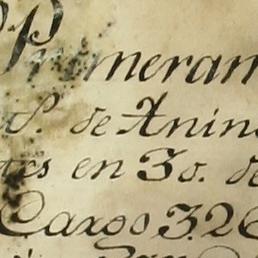 Primeram
de Anin
tes en 30. de
Cargo 326